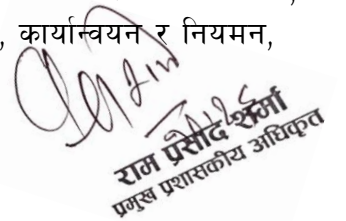 , कार्यान्वयन र नियमन,
राम प्रसाद शर्मा
प्रमुख प्रशासकीय अधिकृत